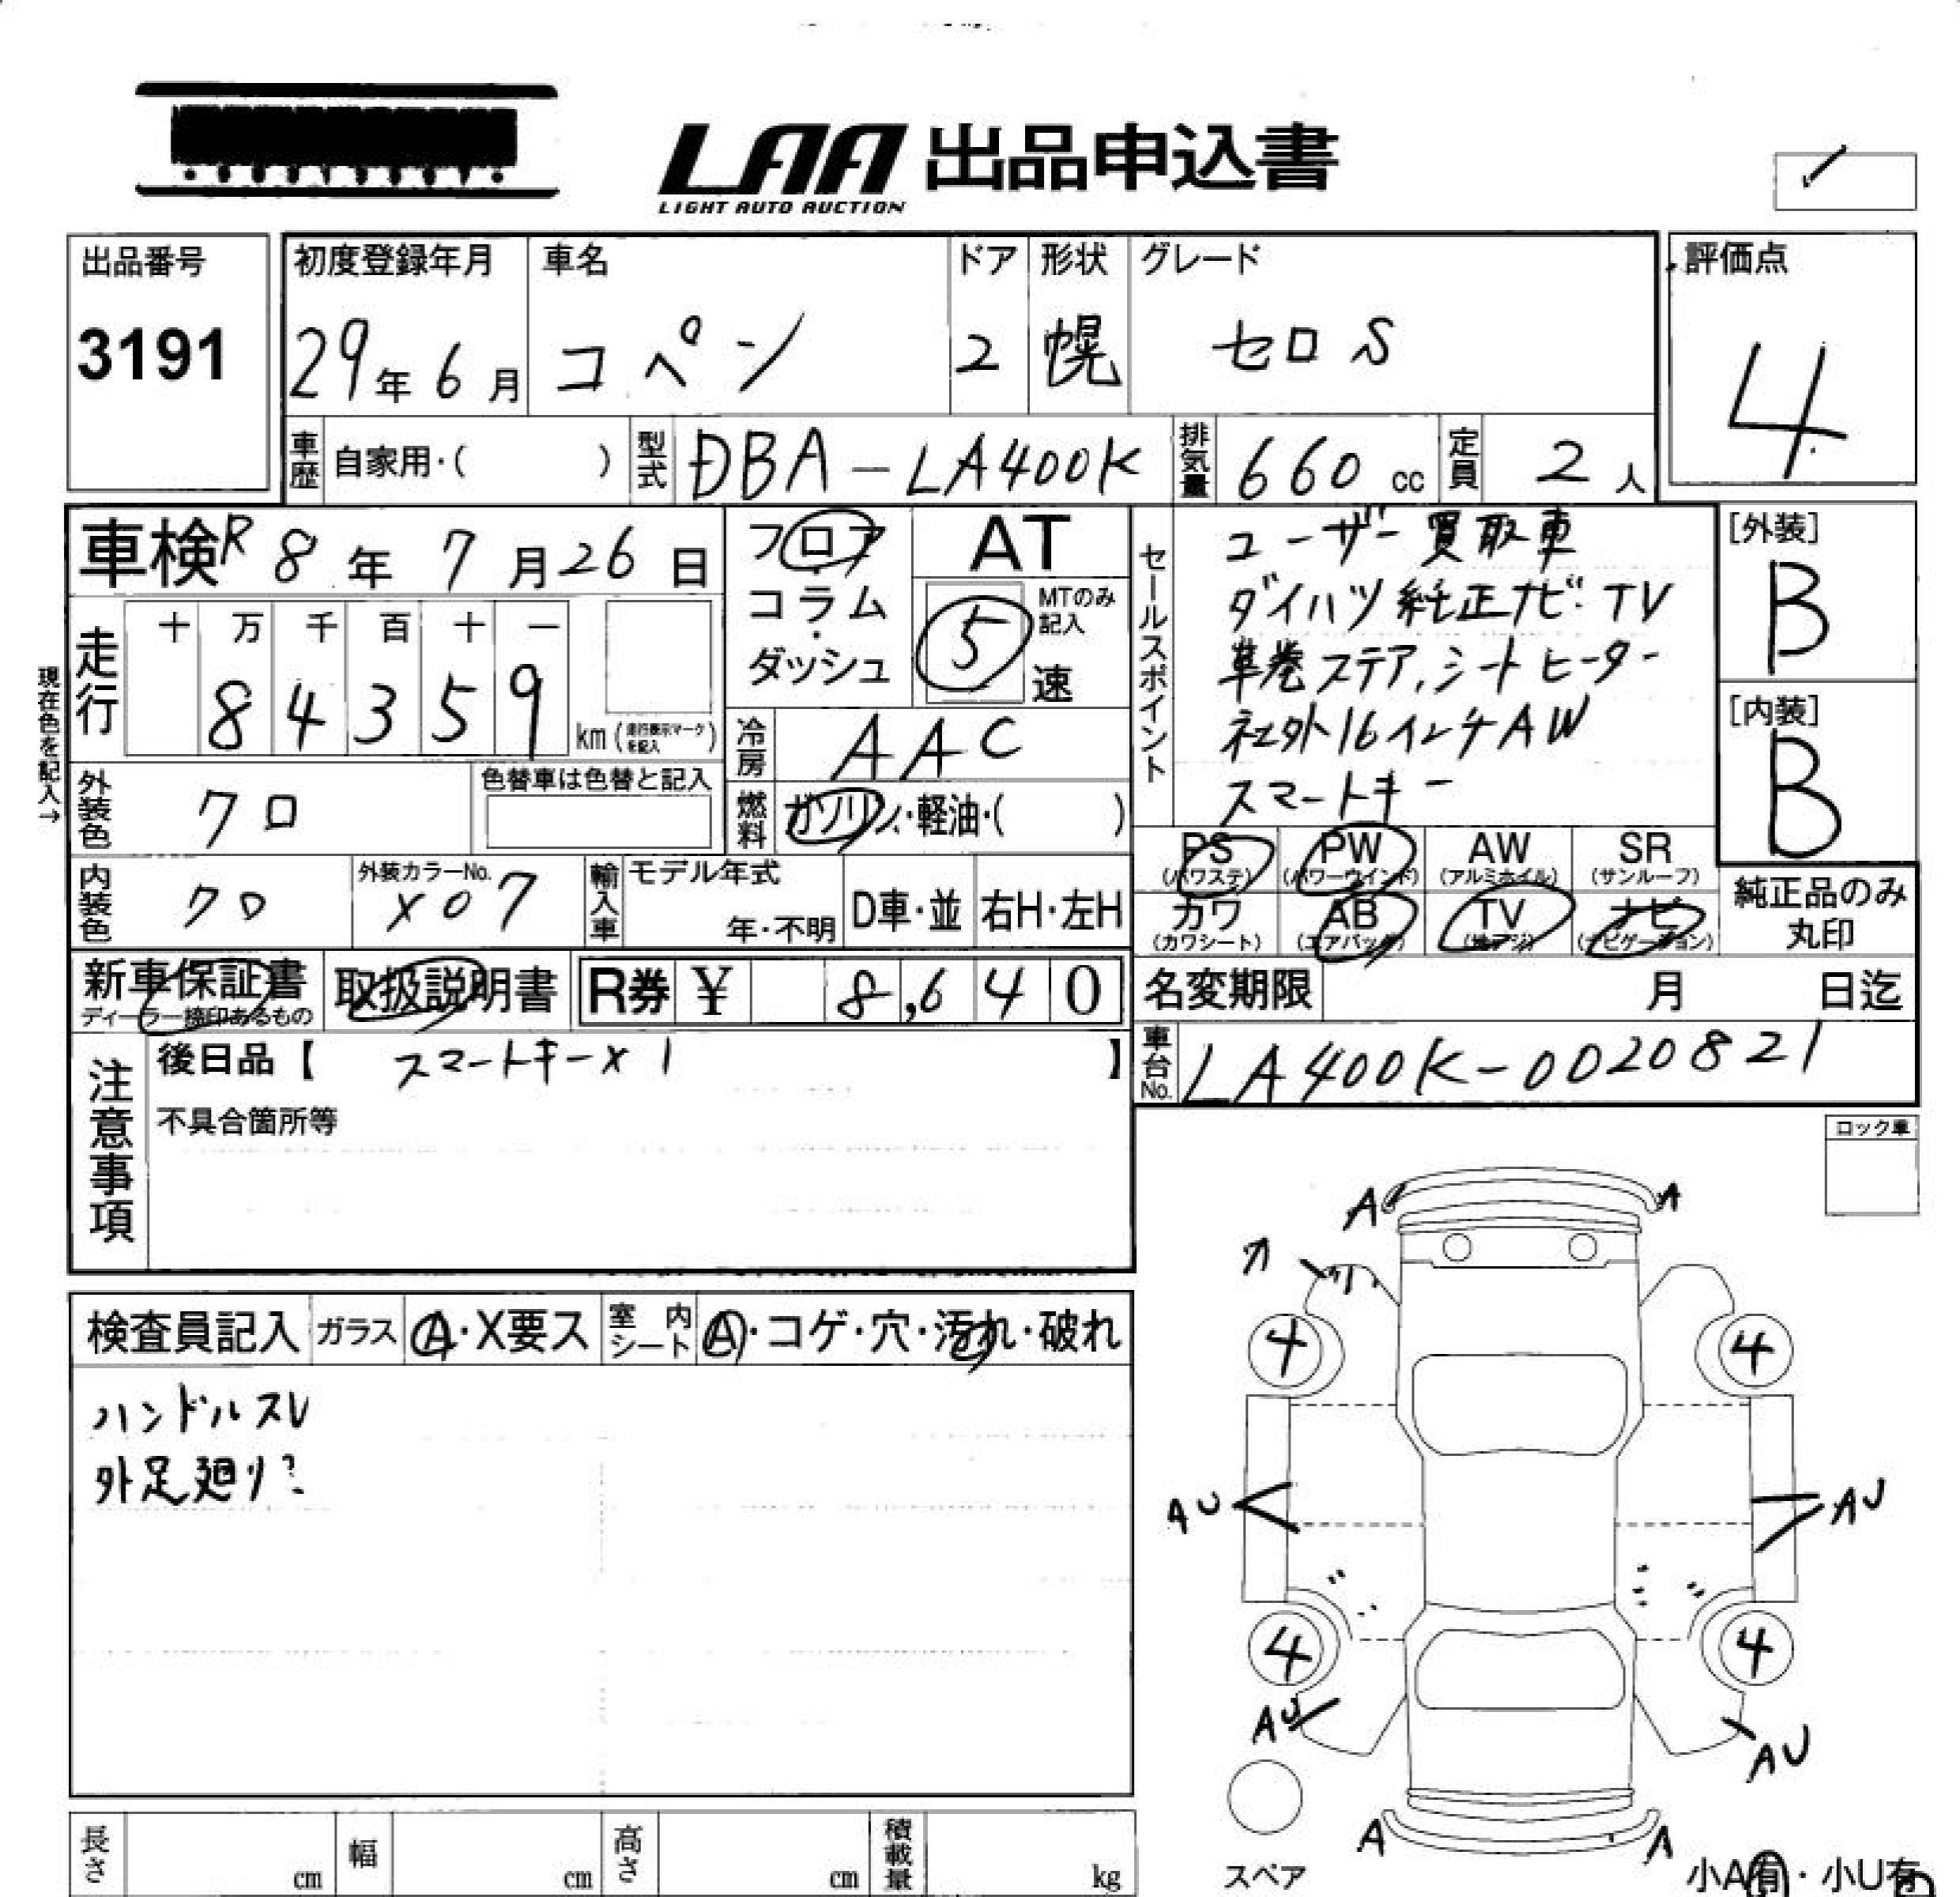 LAA 出品申込書
LIGHT AUTO AUCTION
出品番号
3191
初度登録年月
29年6月
車名
コペン
ドア
2
形状
幌
グレード
セロ S
評価点
4
車歴 自家用・( )
型式 DBA-LA400K
排気量 660 cc
定員 2 人
車検 R 8 年 7 月 26 日
フロア・コラム・ダッシュ
AT
MTのみ記入
5 速
現在色を記入→
走行
十 万 千 百 十 一
8 4 3 5 9 km (走行表示マークを記入)
冷房 AAC
外装色 クロ
色替車は色替と記入
燃料 ガソリン・軽油・( )
内装色 クロ
外装カラーNo. X07
輸入車 モデル年式
年・不明
D車・並
右H・左H
セールスポイント
ユーザー買取車
ダイハツ純正ナビ・TV
革巻ステア,シートヒーター
社外16インチAW
スマートキー
[外装]
B
[内装]
B
PS (パワステ)
PW (パワーウインド)
AW (アルミホイル)
SR (サンルーフ)
カワ (カワシート)
AB (エアバッグ)
TV (地デジ)
ナビ (ナビゲーション)
純正品のみ
丸印
新車保証書
ディーラー捺印あるもの
取扱説明書
R券 ¥ 8,640
名変期限 月 日迄
車台No. LA400K-0020821
注意事項
後日品【 スマートキーx1 】
不具合箇所等
ロック車
検査員記入 ガラス A・X要ス
室内シート A・コゲ・穴・汚れ・破れ
ハンドルスレ
外足廻り
A A
4 4
AU AU
4 4
AU AU
A A
スペア
小A有・小U有
長さ cm
幅 cm
高さ cm
積載量 kg